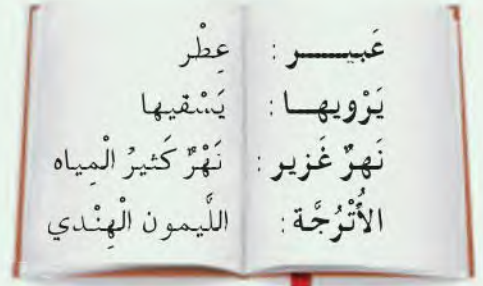 عَبيـــــر : عِطْر
يَرْويهــا : يَسْقيها
نَهرٌ غَزير : نَهْرٌ كَثيرُ الْمِياه
الأُتْرُجَّة : اللَّيمون الْهِنْدي